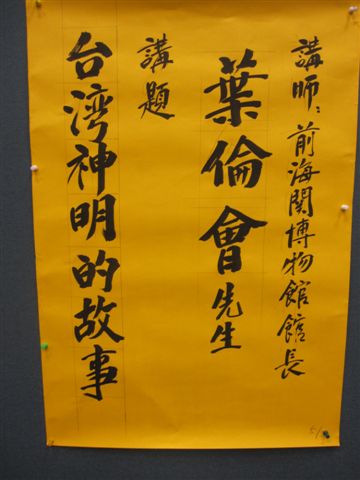 講師：前海関博物館館長
葉倫會先生
講題
台湾神明的故事